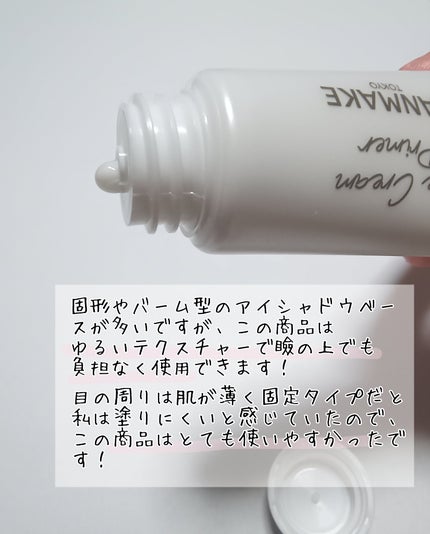 ANMAKE
TOKYO
Cream
Primer
固形やバーム型のアイシャドウベー
スが多いですが、この商品は
ゆるいテクスチャーで瞼の上でも
負担なく使用できます！
目の周りは肌が薄く固定タイプだと
私は塗りにくいと感じていたので、
この商品はとても使いやすかったで
す！